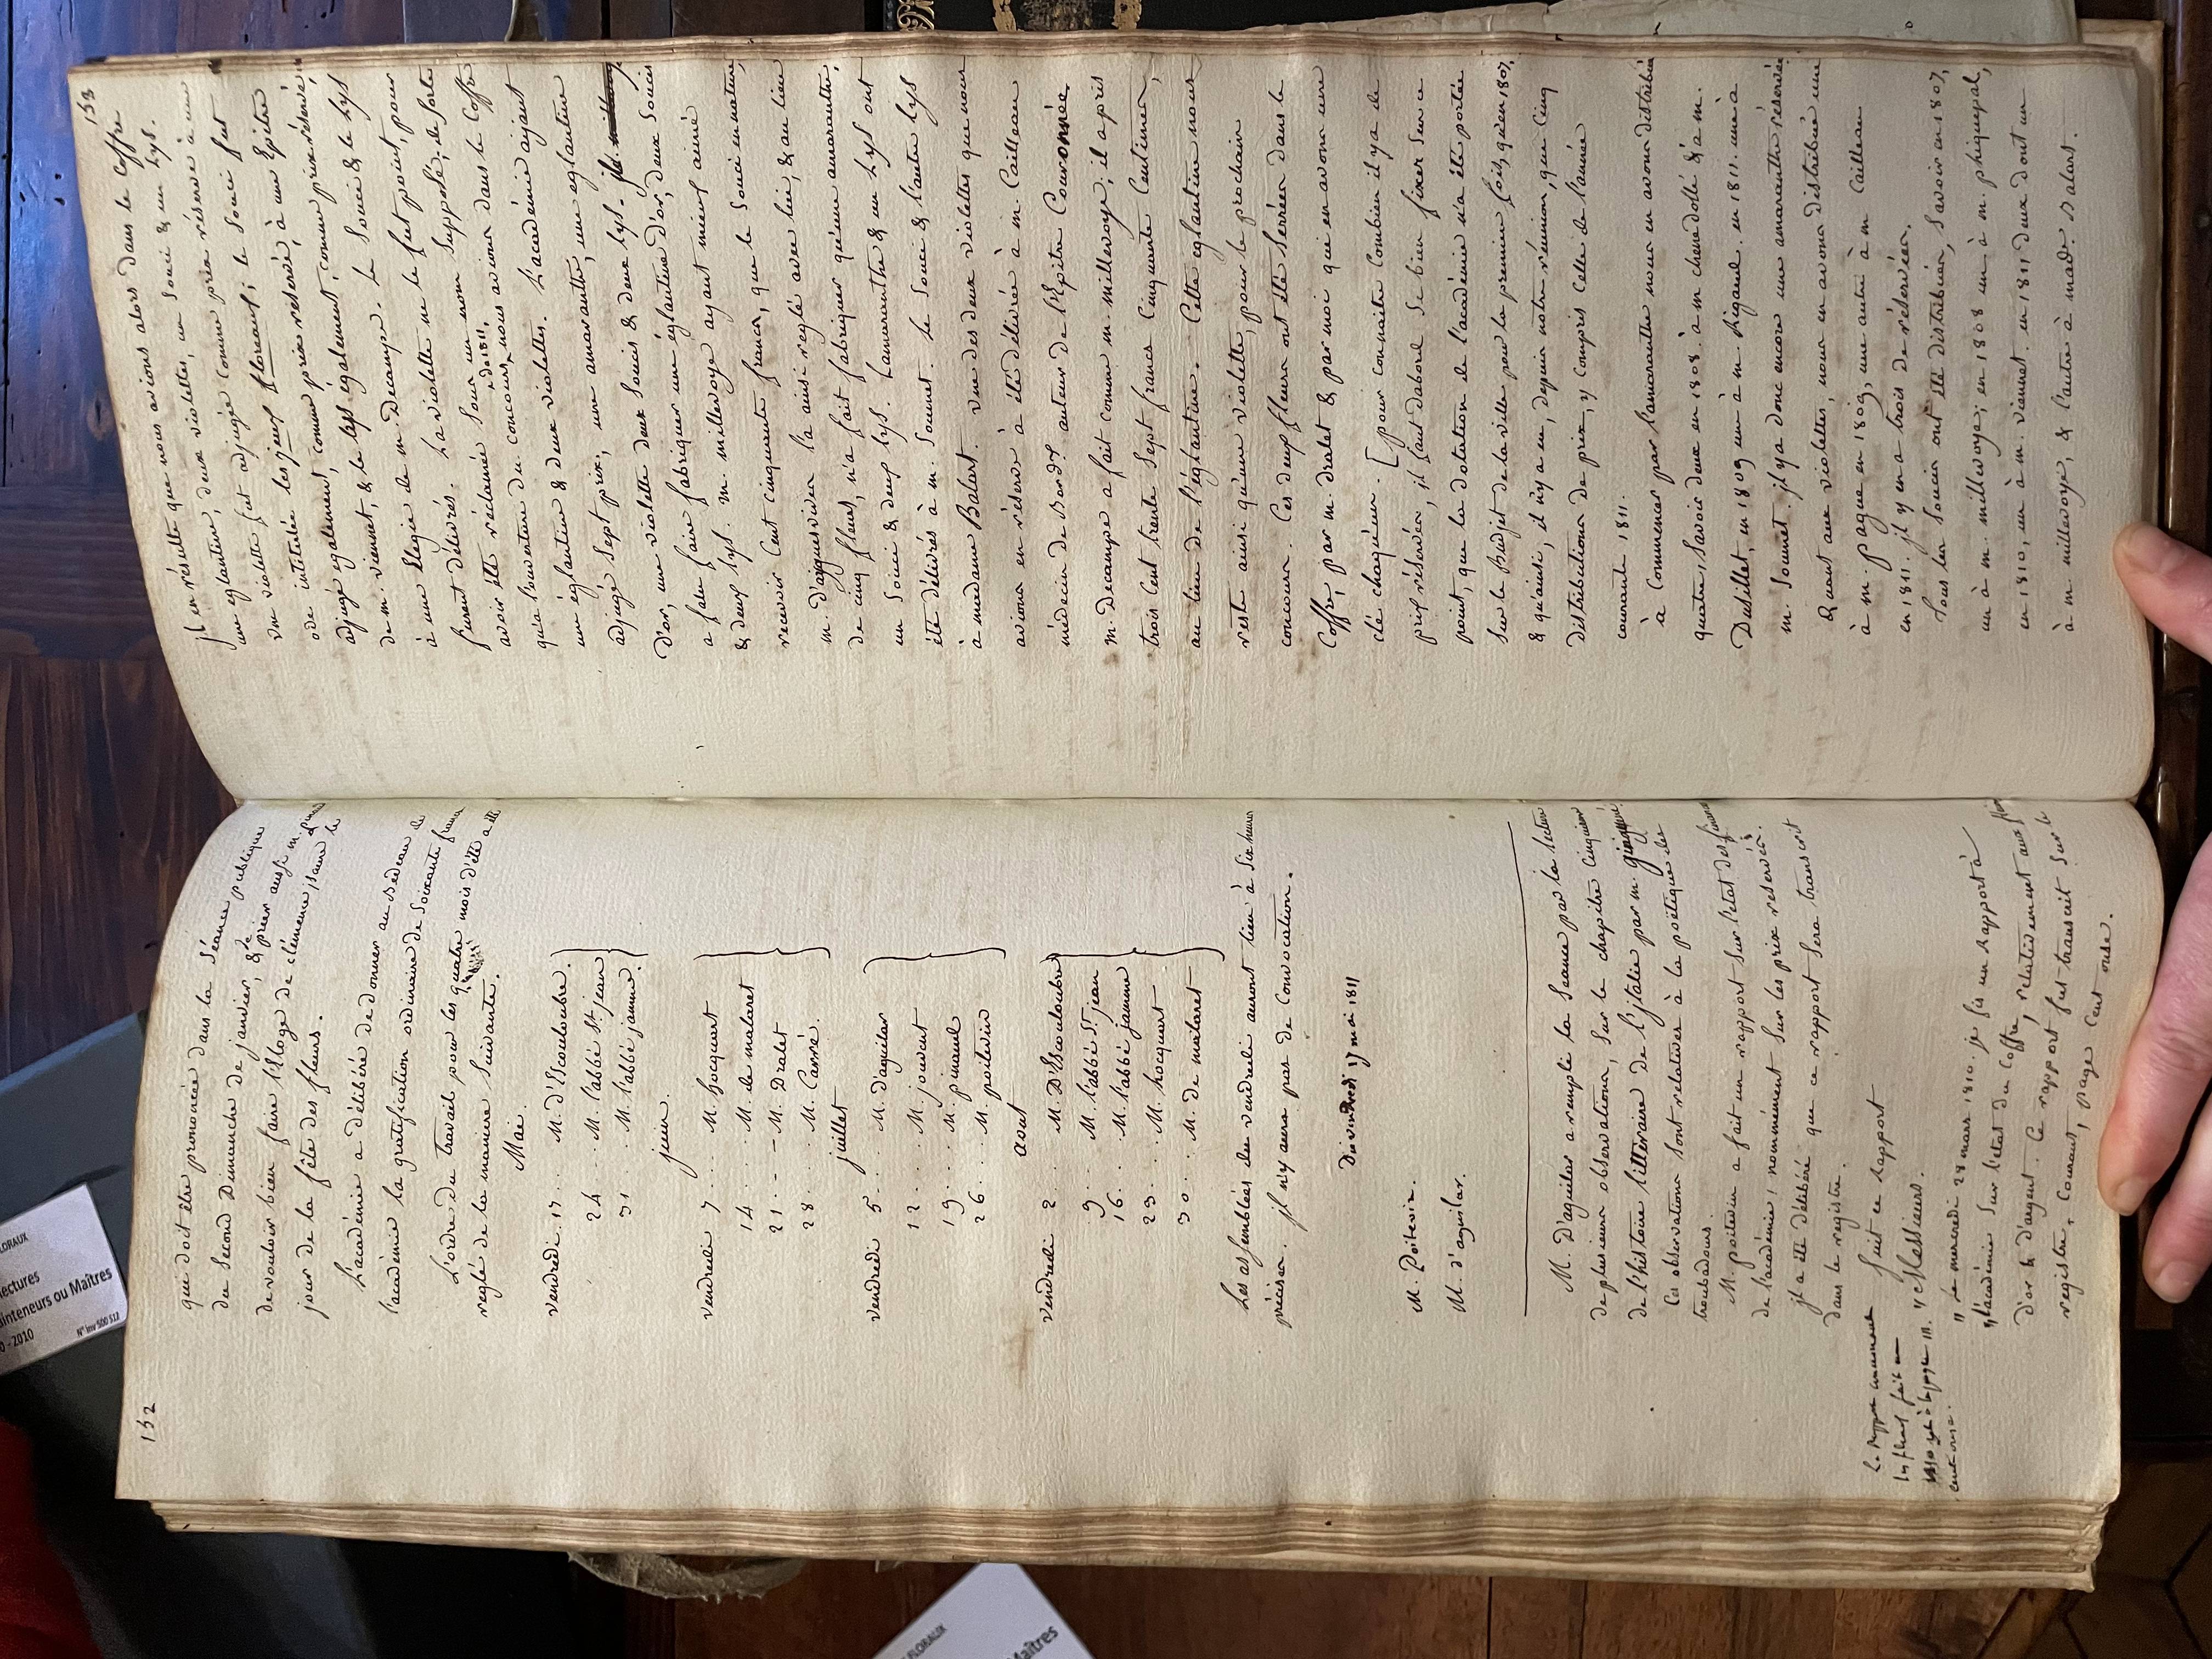 132
qui doit être prononcée dans la séance publique
du second Dimanche de janvier, & de prier aussi m. pinaud
de vouloir bien faire l'Eloge de clémence isaure le
jour de la fête des fleurs.
L'académie a délibéré de donner au Bedeau de
l'académie la gratification ordinaire de soixante francs
L'ordre du travail pour les quatre mois d'été a été
reglé de la maniere suivante.
Mai.
vendredi 17 .... M. d'Escouloubre.
24 .... M. l'abbé St. jean
31 .... M. l'abbé jamme.
juin.
vendredi 7 .... M. hocquart
14 .... M. de malaret
21 . - - M. Dralet
28 .... M. Carré.
juillet
vendredi 5 .... M. d'aguilar
12 .... M. jouvent
19 .... M. pinaud
26 .... M. poitevin
aout
vendredi 2 .... M. D'Escouloubre
9 .... M. l'abbé St. jean
16 .... M. l'abbé jamme
23 .... M. hocquart
30 .... M. de malaret
Les assemblées du vendredi auront lieu à six heures
précises. jl n'y aura pas de Convocation.
Du vendredi 17 mai 1811
M. Poitevin.
M. d'aguilar.
M. D'aguilar a rempli la Seance par la lecture
de plusieurs observations, sur le chapitre cinquieme
de l'histoire litteraire de l'jtalie par m. ginguené.
Ces observations sont relatives à la poëtique des
troubadours.
M. poitevin a fait un rapport sur l'etat des fleurs
de l'académie, nommément sur les prix reservés.
jl a été délibéré que ce rapport sera transcrit
dans le registre.
Suit ce Rapport
Le Rapport
fait en
1810 est à la page 111.
cent onze.
"Messieurs.
"Le mercredi 28 mars 1810. je fis un Rapport à
"l'académie sur l'etat du Coffre, relativement aux fleurs
d'or & d'argent. Ce rapport fut transcrit sur le
registre, Courant, page cent onze.
133
jl en résulte que nous avions alors dans le Coffre
une eglantine, deux violettes, un Souci & un Lys.
une violette fut adjugée comme prix réservé à une
ode intitulée les jeux floreaux; le Souci fut
adjugé egalement, comme prix reservé, à une Epitre
de m. viennet, & le Lys également, comme prix réservé,
à une Elegie de m. Decampe. Le Souci & le Lys
furent délivrés. La violette ne le fut point, pour
avoir été réclamée sous un nom supposé; de sorte
qu'à l'ouverture du concours de 1811, nous avions dans le Coffre
une églantine & deux violettes. L'académie ayant
adjugé Sept prix, une amarante, une eglantine
d'or, une violette deux Soucis & deux Lys.
a falu faire fabriquer une églantine d'or, deux Soucis
& deux Lys. M. millevoye ayant mieux aimé
recevoir Cent cinquante francs, que le Souci en nature,
m. d'aiguesvives l'a ainsi reglé avec lui, & au lieu
de cinq fleurs, n'a fait fabriquer qu'une amaranthe,
un Souci & deux Lys. L'amaranthe & un Lys ont
été délivrés à m. Soumet. Le Souci & l'autre Lys
à madame Balart. une des deux violettes que nous
avions en réserve à été délivrée à m. Cailleau
médecin de Bordx. auteur de l'Epitre Couronnée
m. Decampe a fait comme m. millevoye; il a pris
trois Cent trente Sept francs Cinquante Centimes,
au lieu de l'églantine. Cette eglantine nous
reste ainsi qu'une violette, pour le prochain
concours. Ces deux fleurs ont été serrées dans le
Coffre, par m. dralet & par moi qui en avons une
clé chaqu'un. [pour connaitre Combien il y a de
prix réservés, il faut dabord se bien fixer sur ce
point, que la dotation de l'académie n'a été portée
sur le Budjet de la ville pour la premiere fois, qu'en 1807,
& qu'ainsi, il n'y a eu, depuis notre réunion, que Cinq
distributions de prix, y Compris Celle de l'année
courante 1811.
à Commencer par l'amaranthe nous en avons distribué
quatre, Savoir deux en 1808 à m chenedollé & à m.
Dusillet, en 1809 une à m. Rigaud. en 1811. une à
m. Soumet. jl y a donc encore une amaranthe réservée
Quant aux violettes, nous en avons distribué une
à m. pague en 1809, une autre à m Cailleau
en 1811. jl y en a trois de réservées.
Tous les Soucis ont été distribués, savoir en 1807,
un à m. millevoye; en 1808 un à m. phiquepal,
en 1810, un à m. viennet. en 1811 deux dont un
à m. millevoye, & l'autre à made. Balart.